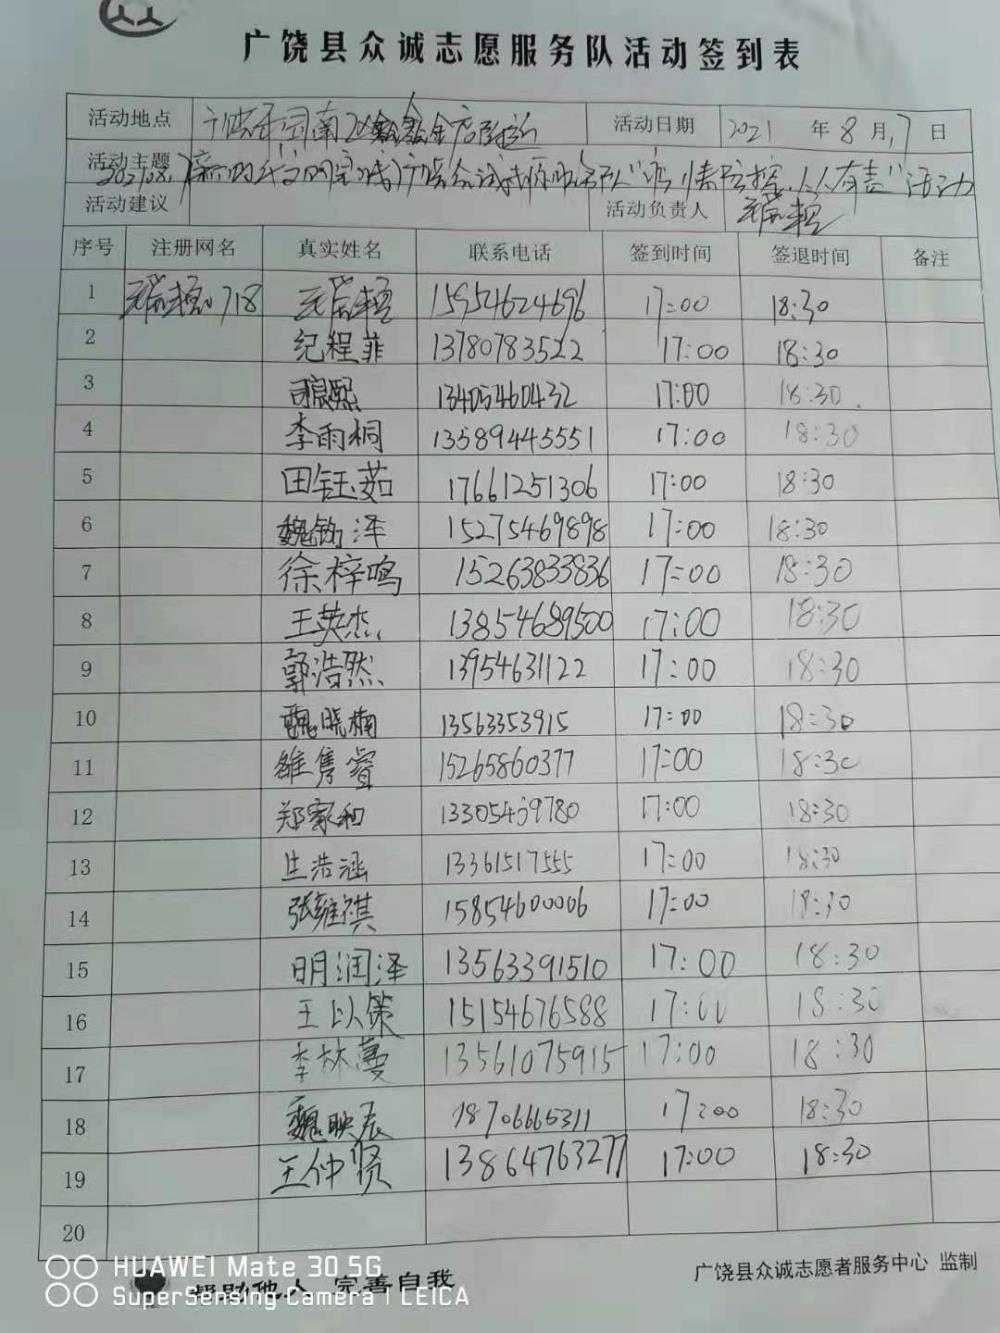 广饶县众诚志愿服务队活动签到表
活动地点 活动日期 2021 年 8 月 7 日
活动主题 人人有责"活动
活动建议 活动负责人
序号 注册网名 真实姓名 联系电话 签到时间 签退时间 备注
1 718 15954624696 17:00 18:30
2 纪程菲 13780783522 17:00 18:30
3 13405460432 17:00 18:30
4 李雨桐 13589445551 17:00 18:30
5 田钰茹 17661251306 17:00 18:30
6 魏铭泽 15275469898 17:00 18:30
7 徐梓鸣 15263833836 17:00 18:30
8 王英杰 13854689500 17:00 18:30
9 郭浩然 13954631122 17:00 18:30
10 魏晓楠 13563353915 17:00 18:30
11 隽睿 15265860377 17:00 18:30
12 郑家和 13305469780 17:00 18:30
13 生浩涵 13361517555 17:00 18:30
14 张雍祺 15854600006 17:00 18:30
15 明润泽 13563391510 17:00 18:30
16 王以策 15154676588 17:00 18:30
17 李林蔓 13561075915 17:00 18:30
18 魏映辰 18706665311 17:00 18:30
19 王仲贤 13864763277 17:00 18:30
20
帮助他人 完善自我 广饶县众诚志愿者服务中心 监制
HUAWEI Mate 30 5G
SuperSensing Camera | LEICA